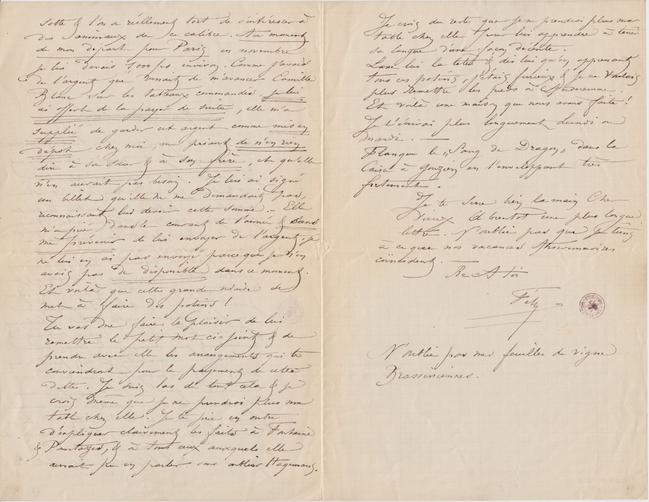 sotte & l'on a réellement tort de s'intéresser à
des animaux de ce calibre. Au moment
de mon départ pour Paris en novembre
je lui devais environ. Comme j'avais
de l'argent que venait de m'avancer Camille
Blanc sur les tableaux commandés, je lui
ai offert de la payer de suite, elle m'a
supplié de garder cet argent comme mis en
dépôt chez moi, me priant de n'en rien
dire à sa sœur & à son frère, et qu'elle
n'en aurait pas besoin. Je lui ai signé
un billet qu'elle ne me demandait pas,
reconnaissant lui devoir cette somme. Elle
m'a prié dans le courant de l'année & sans
me prévenir de lui envoyer de l'argent, je
ne lui en ai pas envoyé parce que je n'en
avais pas de disponible dans ce moment.
Et voilà que cette grande
met à faire des potins !
Tu vas me faire le plaisir de lui
remettre le petit mot ci-joint & de
prendre avec elle les arrangements qui te
conviendront pour le payement de cette
dette. Je suis las de tout cela & je
crois même que je ne prendrai plus ma
table chez elle. Je te prie en outre
d'expliquer clairement les faits à Fontaine
& Pantazis, & à tous ceux auxquels elle
aurait pu en parler sans oublier Hagemans.
Je crois du reste que je ne prendrai plus ma
table chez elle pour lui apprendre à tenir
sa langue d'une façon décente.
la lettre & dès lui qu'en apprenant
tous ces potins, j'étais furieux & je ne voulais
plus remettre les pieds à
Et voilà une maison qui nous sera faite !
Je t'écrirai plus longuement lundi ou
mardi.
Flanque le "Sang de Dragon" dans la
caisse à en l'enveloppant très
fortement.
Je te serre bien la main Cher
Vieux & bientôt une plus longue
lettre. N'oublie pas que je tiens
à ce que nos vacances
coïncident.
à toi
Fély
N'oublie pas mes feuilles de vigne
Brasséniennes.